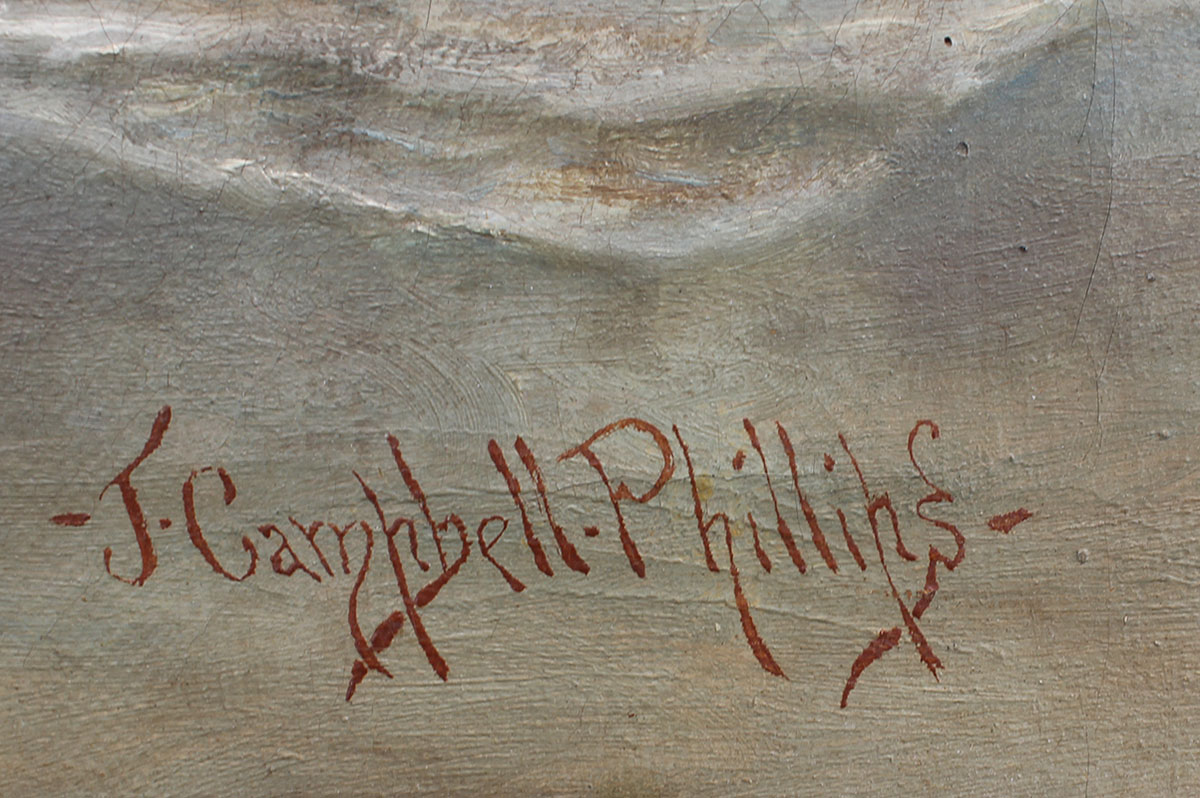 - J. Campbell. Phillips -